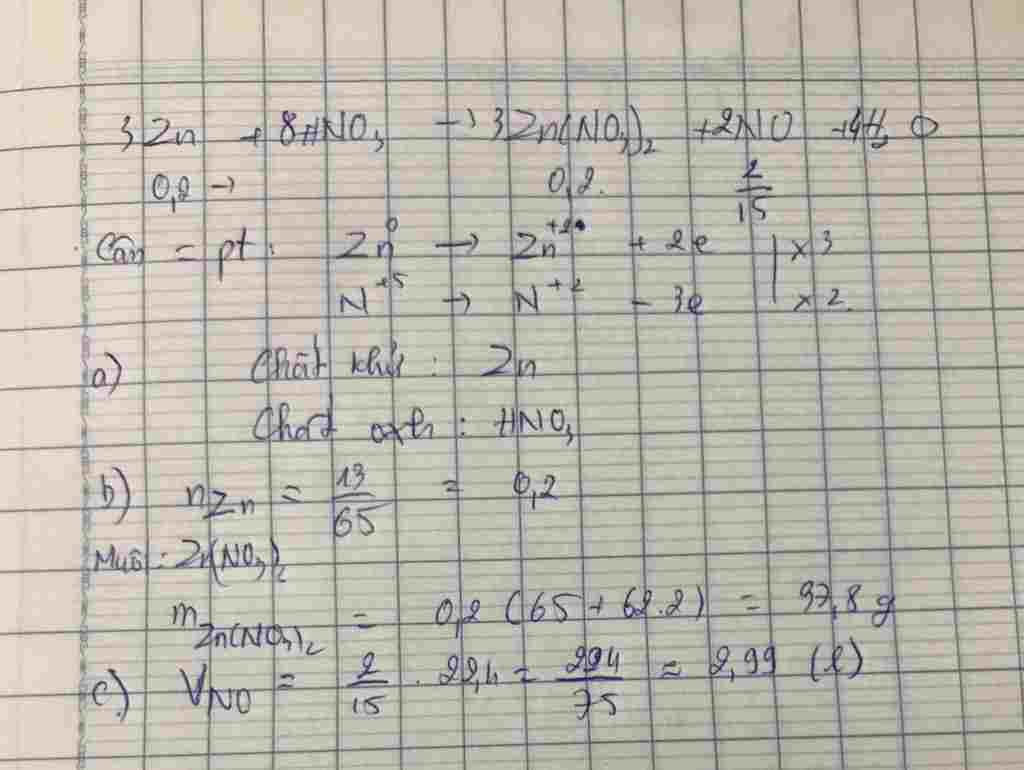 3Zn + 8HNO₃ → 3Zn(NO₃)₂ + 2NO + 4H₂O
0,2 → 0,2. 2/15
Cân = pt: Zn⁰ → Zn⁺² + 2e | x 3
N⁺⁵ → N⁺² - 3e | x 2.
a) Chất khử: Zn
Chất oxh: HNO₃
b) nZn = 13/65 = 0,2
Muối: Zn(NO₃)₂
mZn(NO₃)₂ = 0,2 (65 + 62.2) = 37,8 g
c.) VNO = 2/15 . 22,4 = 224/75 = 2,99 (l)